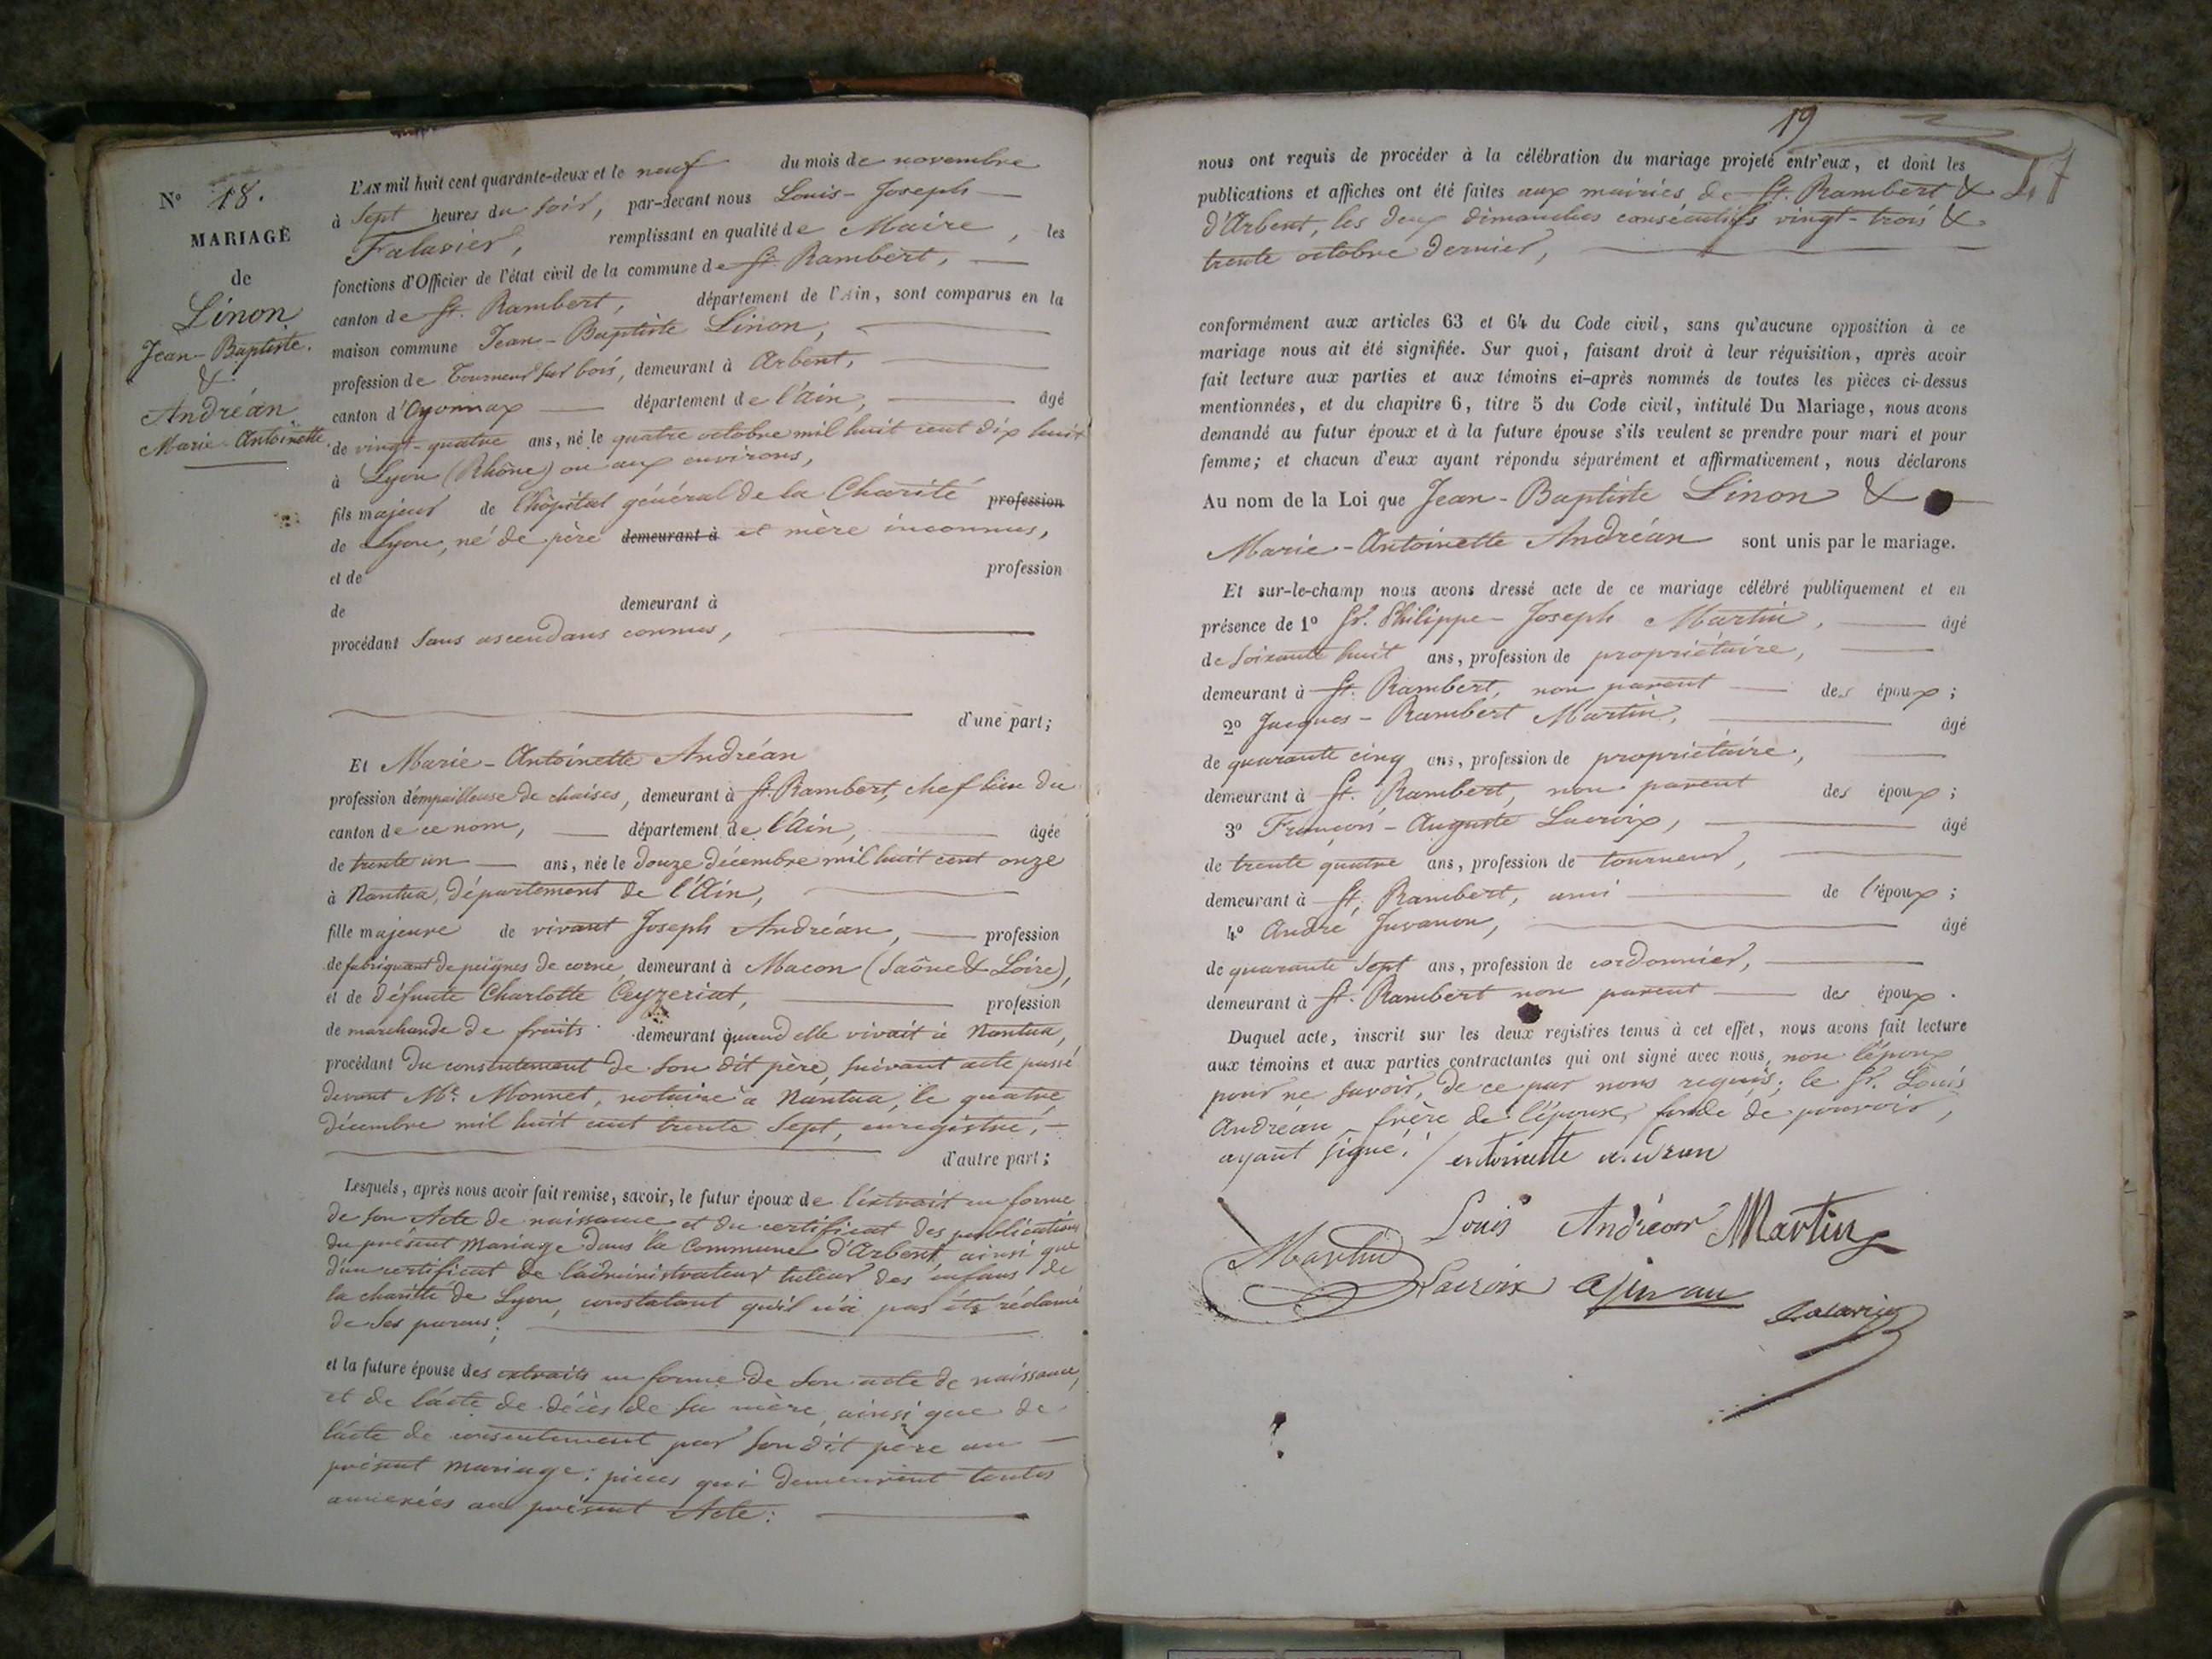 N° 18.
MARIAGE
de
Linon
Jean-Baptiste.
&
Andréan
Marie-Antoinette
L'AN mil huit cent quarante-deux et le neuf du mois de novembre
à Sept heures du soir, par-devant nous Louis-Joseph
Falavier, remplissant en qualité de Maire, les
fonctions d'Officier de l'état civil de la commune de St. Rambert,
canton de St. Rambert, département de l'Ain, sont comparus en la
maison commune Jean-Baptiste Linon,
profession de Tourneur sur bois, demeurant à Arbent,
canton d'Oyonnax département de l'Ain, âgé
de vingt-quatre ans, né le quatre octobre mil huit cent dix huit
à Lyon (Rhône) ou aux environs,
fils majeur de l'hôpital général de la Charité profession
de Lyon, né de père demeurant à et mère inconnus,
et de profession
de demeurant à
procédant sans ascendans connus,
d'une part;
Et Marie-Antoinette Andréan
profession d'empailleuse de chaises, demeurant à St. Rambert, chef lieu du
canton de ce nom, département de l'Ain, âgée
de trente un ans, née le douze décembre mil huit cent onze
à Nantua, département de l'Ain,
fille majeure de vivant Joseph Andréan, profession
de fabriquant de peignes de corne, demeurant à Macon (Saône & Loire),
et de défunte Charlotte Ceyzeriat, profession
de marchande de fruits demeurant quand elle vivait à Nantua,
procédant du consentement de son dit père, suivant acte passé
devant Me. Monnet, notaire à Nantua, le quatre
décembre mil huit cent trente sept, enregistré,
d'autre part;
Lesquels, après nous avoir fait remise, savoir, le futur époux de l'extrait en forme
de son Acte de naissance et du certificat des publications
du présent Mariage dans la Commune d'Arbent, ainsi que
d'un certificat de l'administrateur tuteur des enfans de
la charité de Lyon, constatant qu'il n'a pas été réclamé
de ses parens;
et la future épouse des extraits en forme de son acte de naissance,
et de l'acte de décès de sa mère, ainsi que de
l'acte de consentement par son dit père au
présent mariage; pièces qui demeurent toutes
annexées au présent Acte:
19
nous ont requis de procéder à la célébration du mariage projeté entr'eux, et dont les
publications et affiches ont été faites aux mairies de St. Rambert &
d'Arbent, les deux dimanches consécutifs vingt-trois &
trente octobre dernier,
conformément aux articles 63 et 64 du Code civil, sans qu'aucune opposition à ce
mariage nous ait été signifiée. Sur quoi, faisant droit à leur réquisition, après avoir
fait lecture aux parties et aux témoins ci-après nommés de toutes les pièces ci-dessus
mentionnées, et du chapitre 6, titre 5 du Code civil, intitulé Du Mariage, nous avons
demandé au futur époux et à la future épouse s'ils veulent se prendre pour mari et pour
femme; et chacun d'eux ayant répondu séparément et affirmativement, nous déclarons
Au nom de la Loi que Jean-Baptiste Linon &
Marie-Antoinette Andréan sont unis par le mariage.
Et sur-le-champ nous avons dressé acte de ce mariage célébré publiquement et en
présence de 1° Sr. Philippe-Joseph Martin, âgé
de soixante huit ans, profession de propriétaire,
demeurant à St. Rambert, non parent des époux;
2° Jacques-Rambert Martin, âgé
de quarante cinq ans, profession de propriétaire,
demeurant à St. Rambert, non parent des époux;
3° François-Auguste Lacroix, âgé
de trente quatre ans, profession de tourneur,
demeurant à St. Rambert, ami de l'époux;
4° André Juvanon, âgé
de quarante sept ans, profession de cordonnier,
demeurant à St. Rambert non parent des époux.
Duquel acte, inscrit sur les deux registres tenus à cet effet, nous avons fait lecture
aux témoins et aux parties contractantes qui ont signé avec nous, non l'époux
pour ne savoir, de ce par nous requis; le Sr. Louis
Andréan frère de l'épouse, fondé de pouvoir,
ayant signé. / antoinette
Louis Andréan Martin
Martin
Lacroix
Falavier